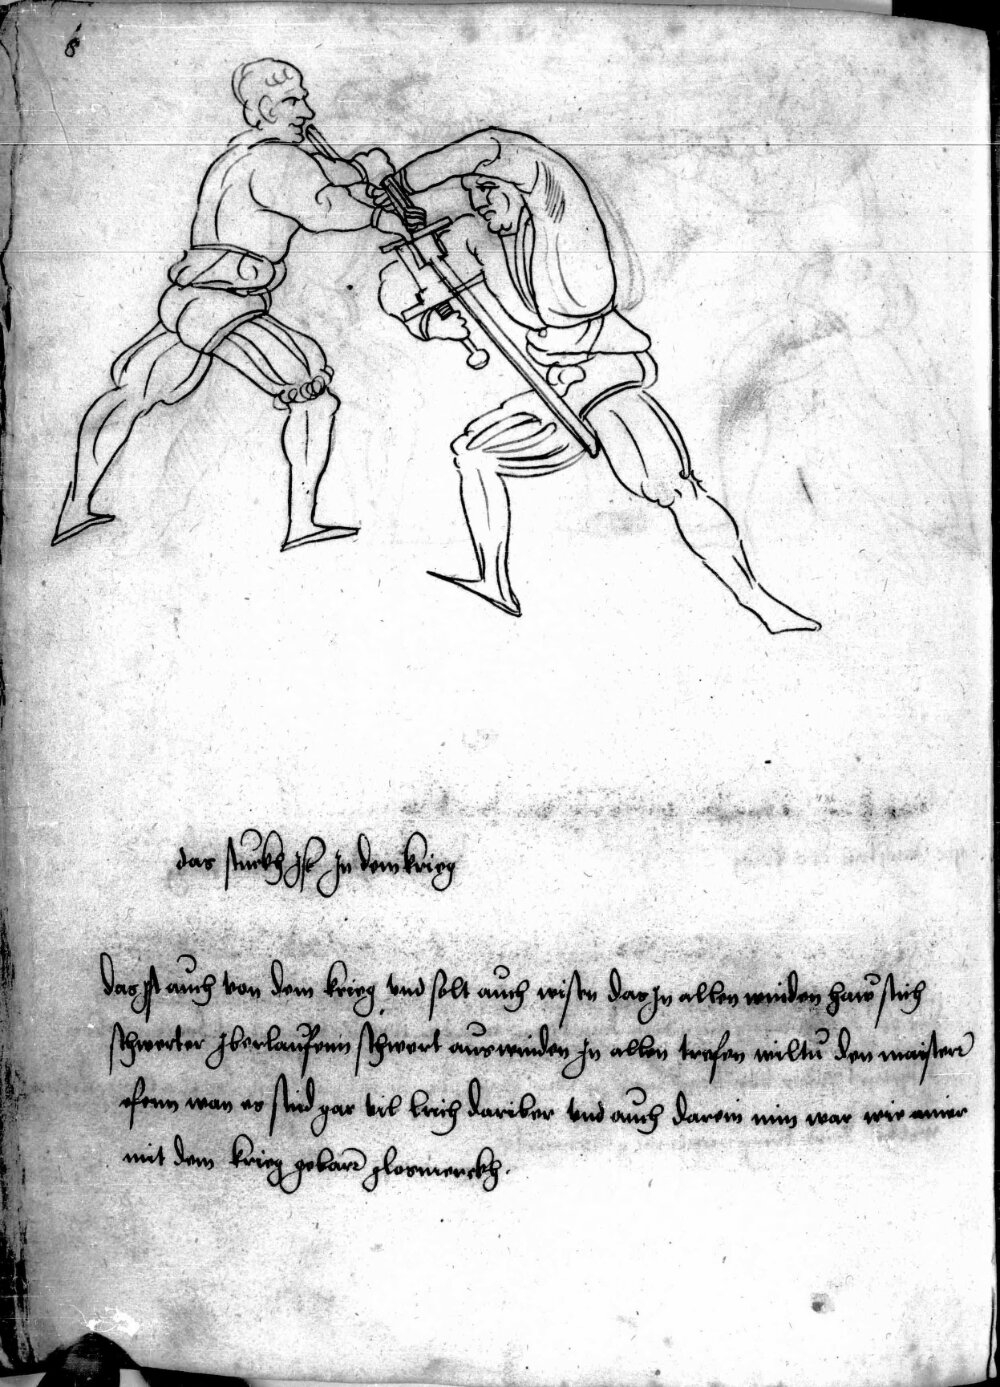 8
das stuckh Ist In dem krieg
das Ist auch von dem krieg vnd solt auch wissen das In allen winden haw stich
schwerter Iberlauffenn schwert auswinden In allen trefen wiltu den maistern
efenn wan es sind gar vil brich dariber vnd auch darein nim war wie ainer
mit dem krieg gebart glosmerckh.